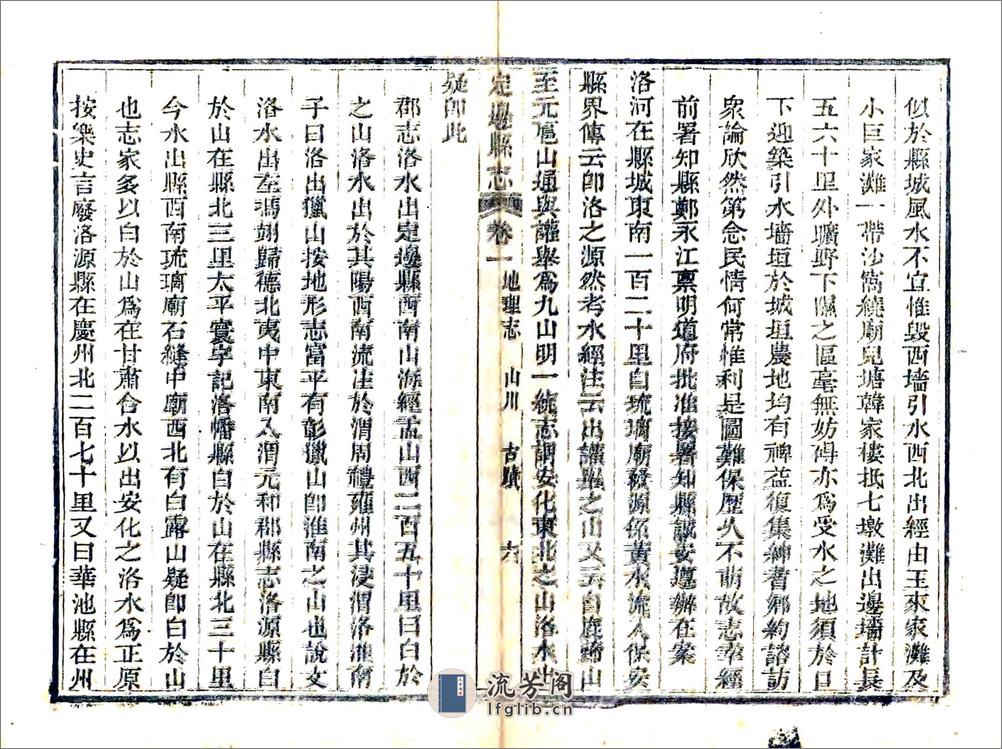 似於縣城風水不宜惟毀西墻引水西北出經由王來家灘及
小巨家灘一帶沙窩繞廟兒塘韓家樓抵七墩灘出邊墻計長
五六十里外曠野下隰之區毫無妨碍亦爲受水之地須於口
下迎築引水墻垣於城垣農地均有裨益復集紳耆鄉約諮訪
衆論欣然第念民情何常惟利是圖難保歷久不萌故志幸經
前署知縣鄭永江稟明道府批准接署知縣誠安遵辦在案
洛河在縣城東南一百二十里自琉璃廟發源係黃水流入保安
縣界傳云卽洛之源然考水經注云出讙舉之山又云白鹿歸山
至元扈山通與讙舉爲九山明一統志謂安化東北之山洛水出
定邊縣志 卷一 地理志 山川 古蹟 六
疑卽此
郡志洛水出定邊縣西南山海經盂山西二百五十里曰白於
之山洛水出於其陽西南流注於渭周禮雍州其浸渭洛淮南
子曰洛出獵山按地形志富平有彭獵山卽淮南之山也說文
洛水出至馮翊歸德北夷中東南入渭元和郡縣志洛源縣白
於山在縣北三里太平寰宇記洛蟠縣白於山在縣北三十里
今水出縣西南琉璃廟石縫中廟西北有白露山疑卽白於山
也志家多以白於山爲在甘肅合水以出安化之洛水爲正原
按樂史言廢洛源縣在慶州北二百七十里又曰華池縣在州
流芳閣
lfglib.cn